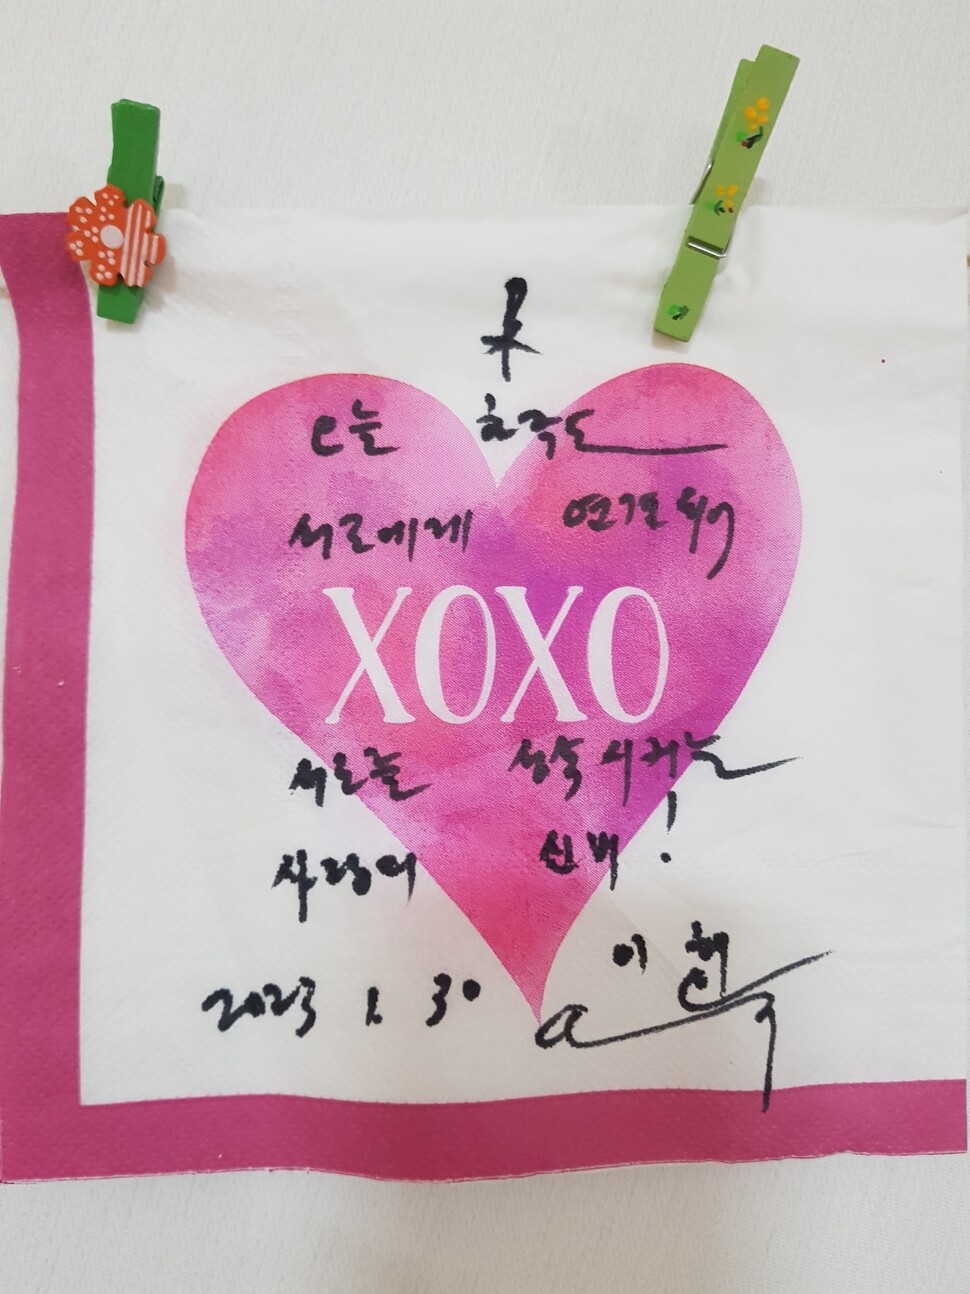 오늘 하루도
서로에게 연결되어
XOXO
서로를 성숙시키는
사랑의 신비!
2023 1. 30 이